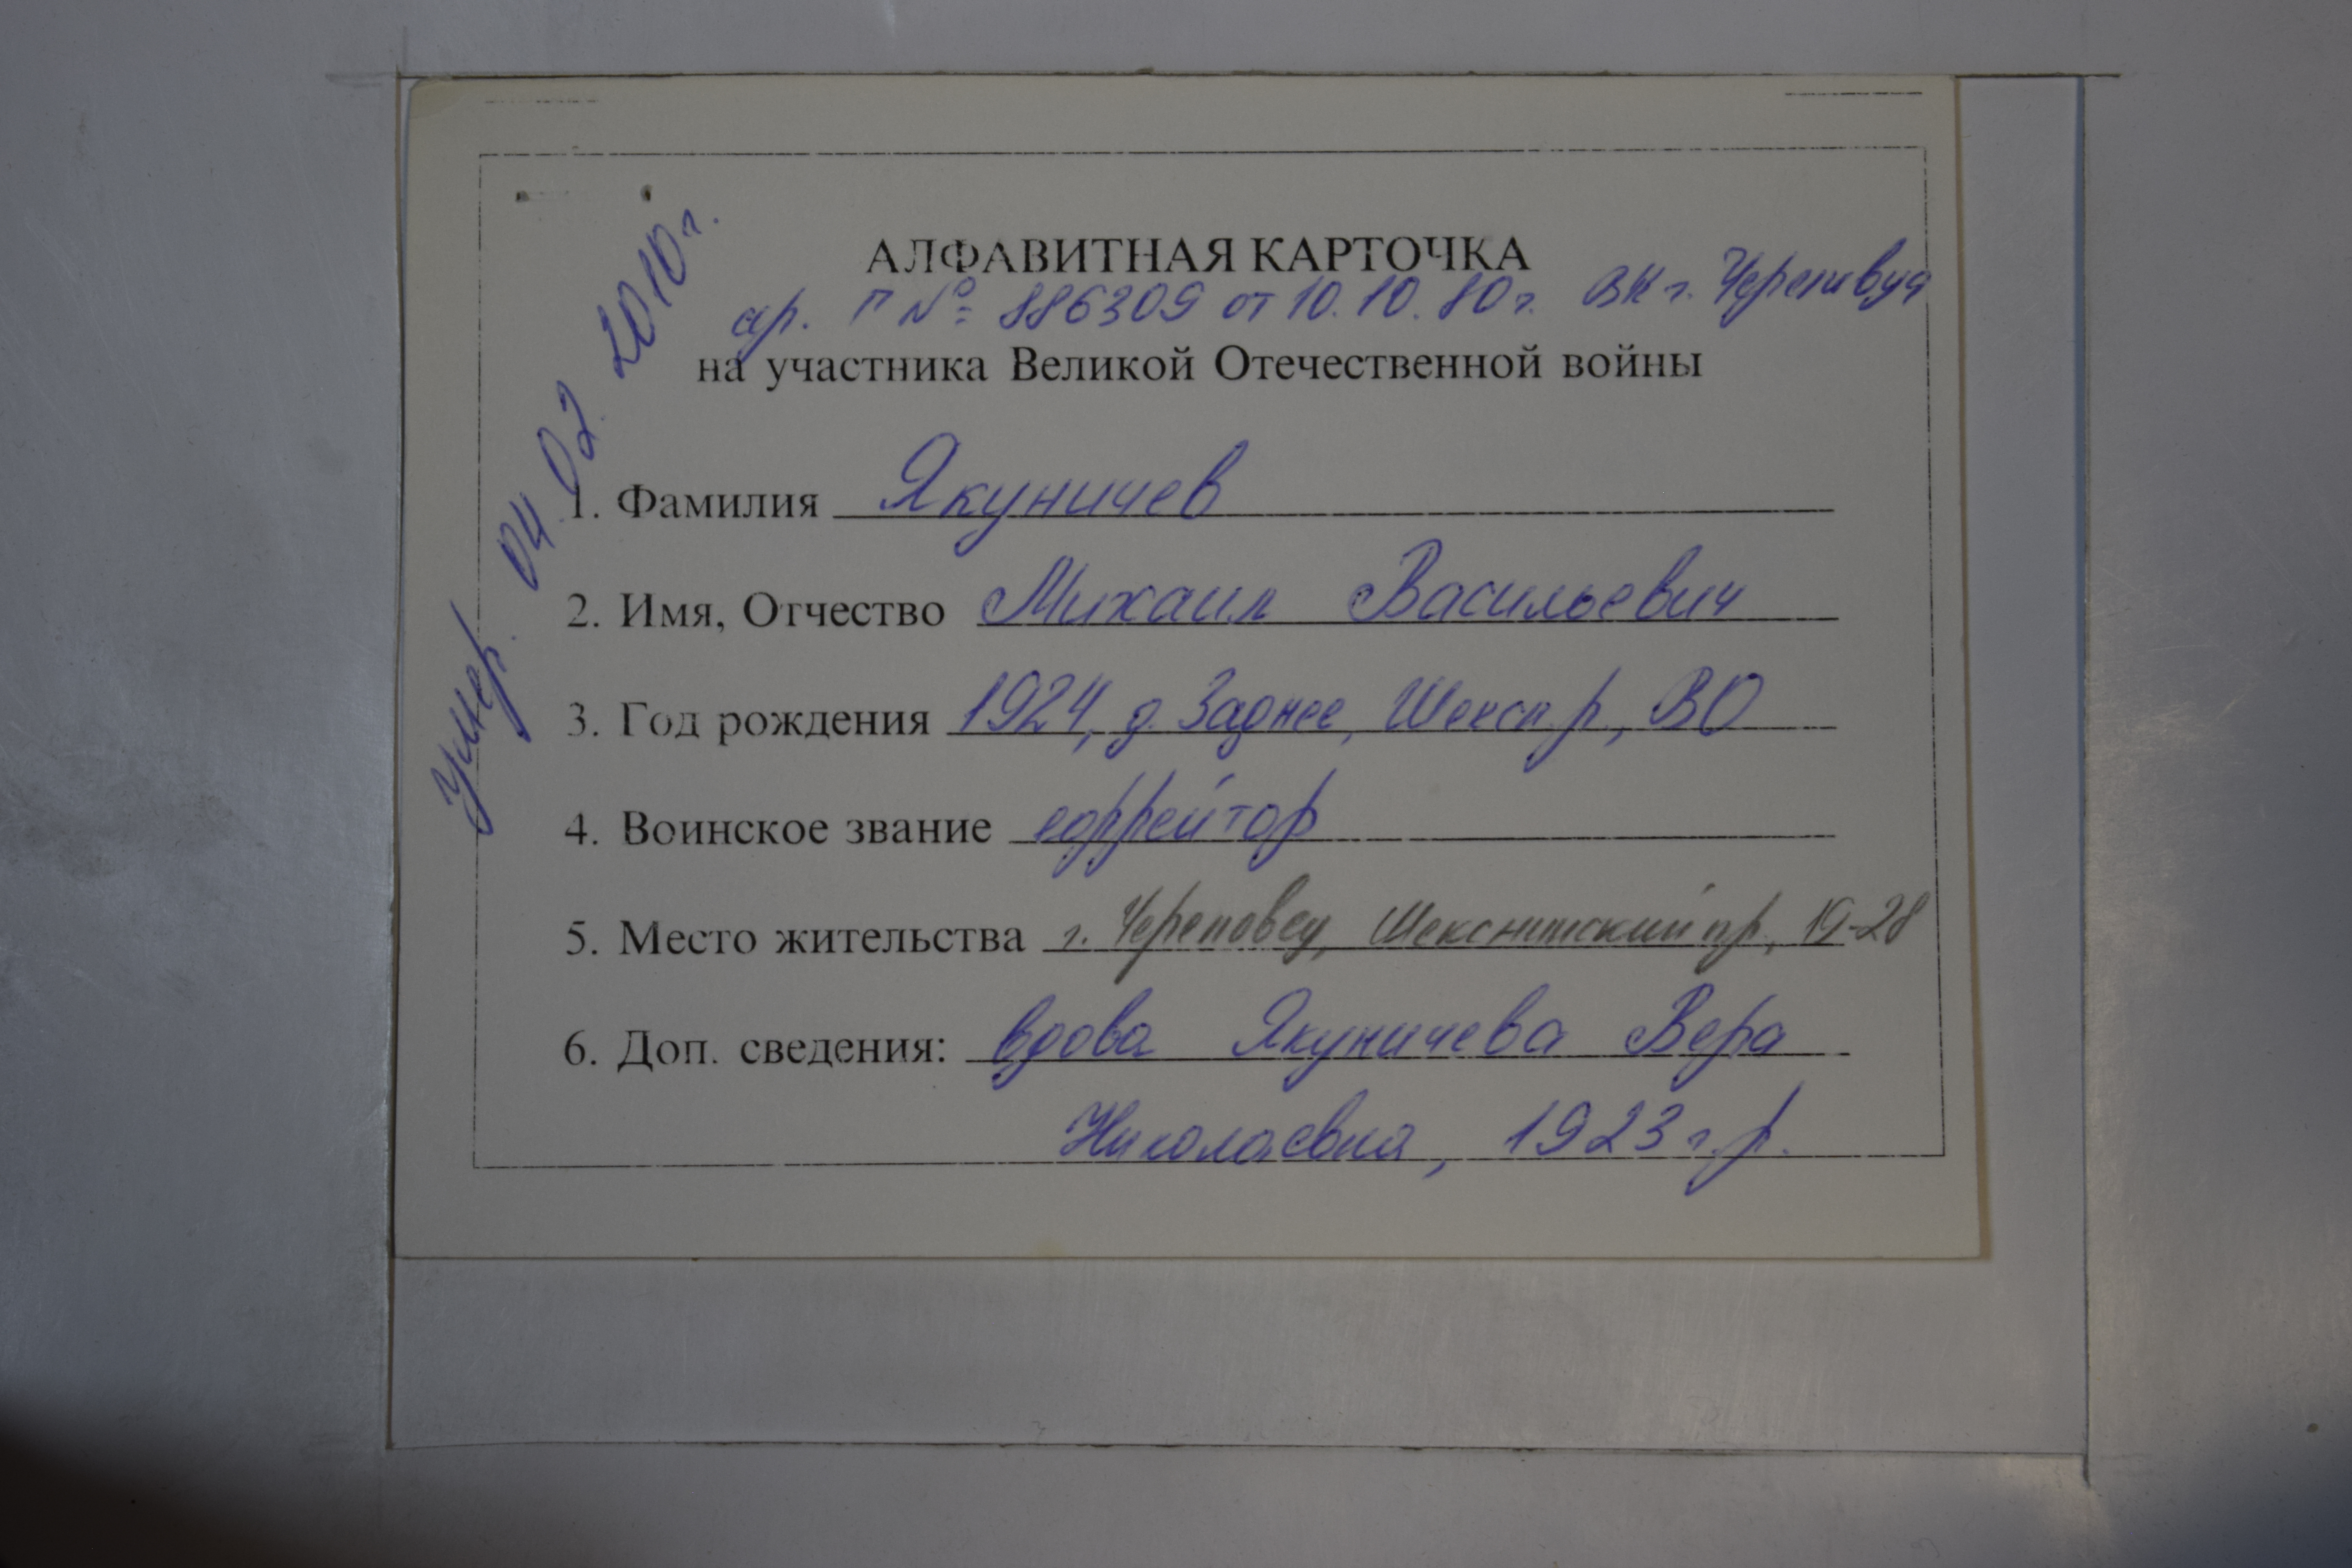 АЛФАВИТНАЯ КАРТОЧКА
ар. П № 886309 от 10.10.80 г. ВК г. Череповца
на участника Великой Отечественной войны
Умер. 04.02. 2010 г.
1. Фамилия Якуничев
2. Имя, Отчество Михаил Васильевич
3. Год рождения 1924, д. Заднее, Шексн. р., ВО
4. Воинское звание ефрейтор
5. Место жительства г. Череповец, Шекснинский пр., 19-28
6. Доп. сведения: вдова Якуничева Вера
Николаевна, 1923 г.р.